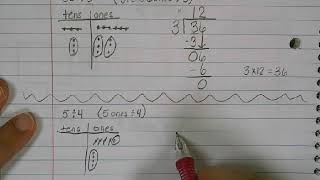 tens ones
12
3 36
-3
06
-6
0
3×12=36
5÷4 (5 ones ÷4)
tens ones